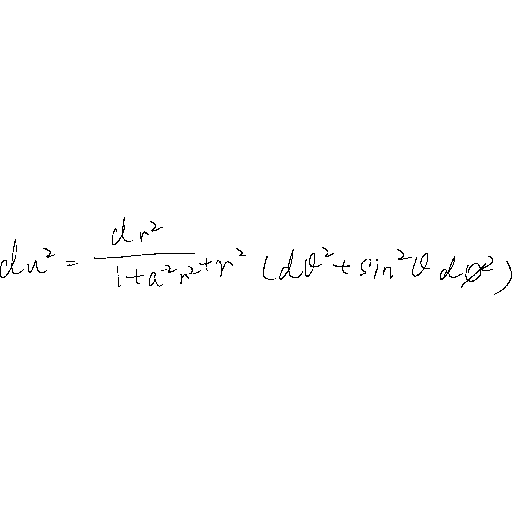 $du^2 = \frac{dr^2}{1+a^{-2}r^2} + r^2 (d\theta^2 + \sin^2\theta d\phi^2)$